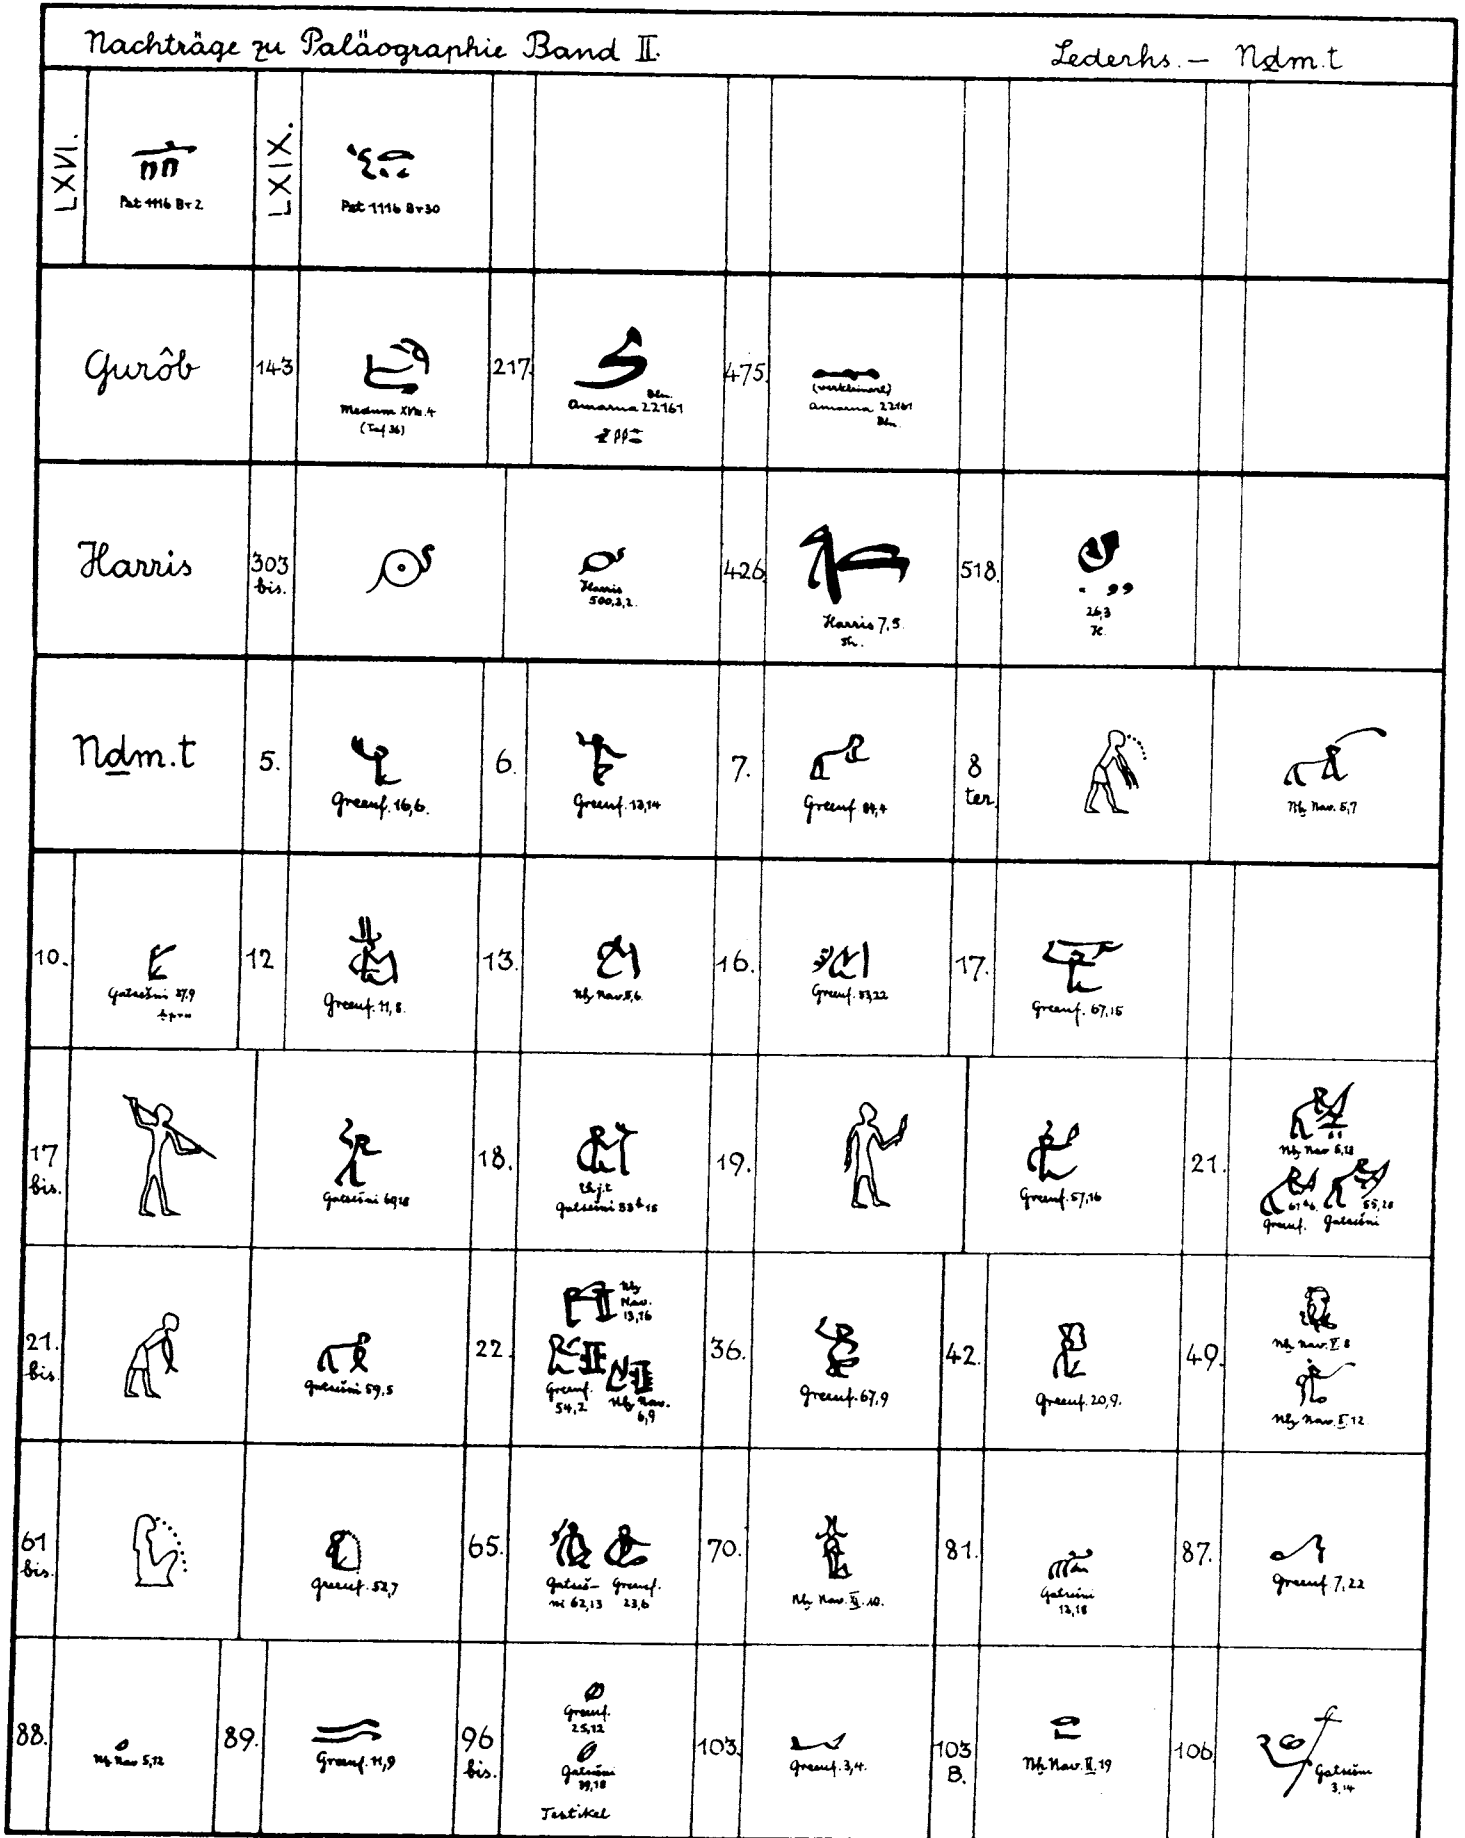 Nachträge zu Paläographie Band II. Lederhs. — Nḏm.t
LXVI.
Pet 1116 B r 2
LXIX.
Pet 1116 B r 30
Gurôb
143
Medum XVIII. 4
(Taf 36)
217.
Bln.
Amarna 22161
475.
(verkleinert)
Amarna 22161
Bln.
Harris
303
bis.
Harris
500,2,2.
426.
Harris 7,5.
518.
26,3
Nḏm.t
5.
Greenf. 16,6.
6.
Greenf. 13,14
7.
Greenf. 84,4
8
ter.
Nḏ. Nav. 5,7
10.
Gatsešni 37,9
12
Greenf. 11,8.
13.
Nḏ. Nav. 5,6.
16.
Greenf. 53,22
17.
Greenf. 67,15
17
bis.
Gatsešni
18.
Gatsešni
19.
Greenf. 57,16
21.
Nḏ. Nav 5,28
Greenf. Gatsešni
55,28
21.
bis.
Gatsešni 59,5
22.
Nḏ.
Nav.
13,16
Greenf.
54,2
Nḏ. Nav.
6,9
36.
Greenf. 67,9
42.
Greenf. 20,9.
49.
Nḏ. Nav. V. 8
Nḏ. Nav. V. 12
61
bis.
Greenf. 52,7
65.
Gatseš-
ni 62,13
Greenf.
23,6
70.
Nḏ. Nav. XI. 10.
81.
Gatsešni
12,18
87.
Greenf. 7,22
88.
Nḏ. Nav 5,12
89.
Greenf. 11,9
96
bis.
Greenf.
25,12
Gatsešni
39,18
Testikel
103.
Greenf. 3,4.
103
B.
Nḏ. Nav. II. 19
106
Gatsešni
3,14